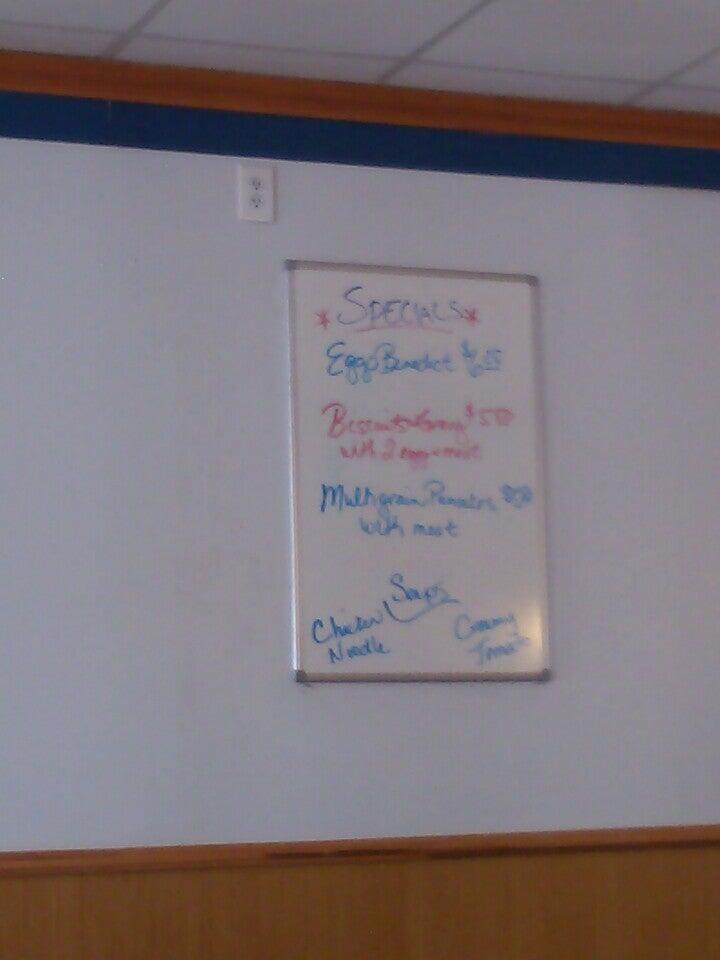 * SPECIALS *
Eggs Benedict
Biscuits & Gravy $5.50
with 2 eggs + meat
Multigrain Pancakes
with meat
Soups
Chicken
Noodle
Creamy
Tomato